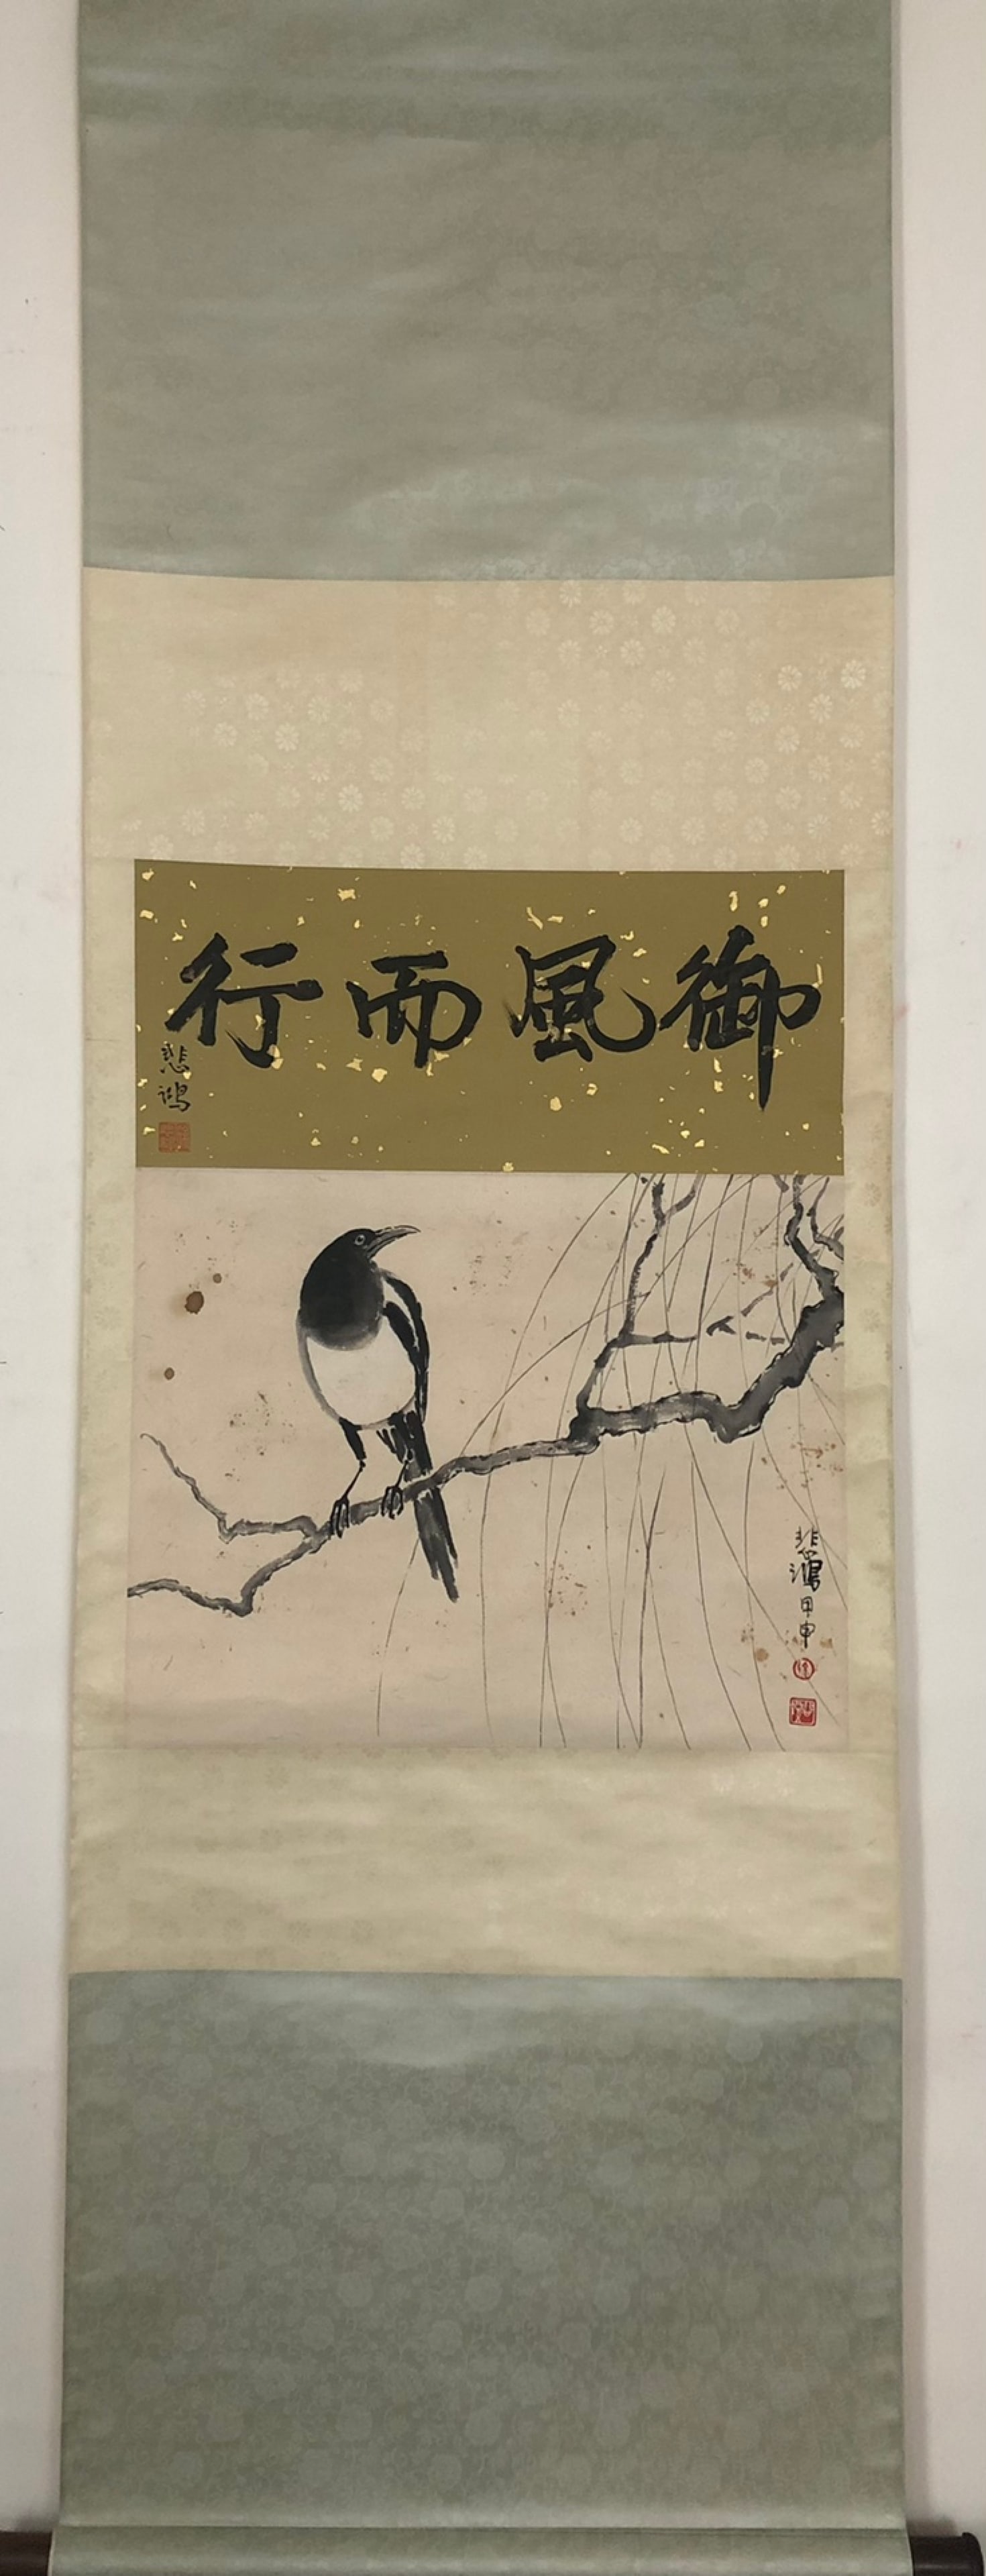 御風而行
悲鴻
悲鴻甲申